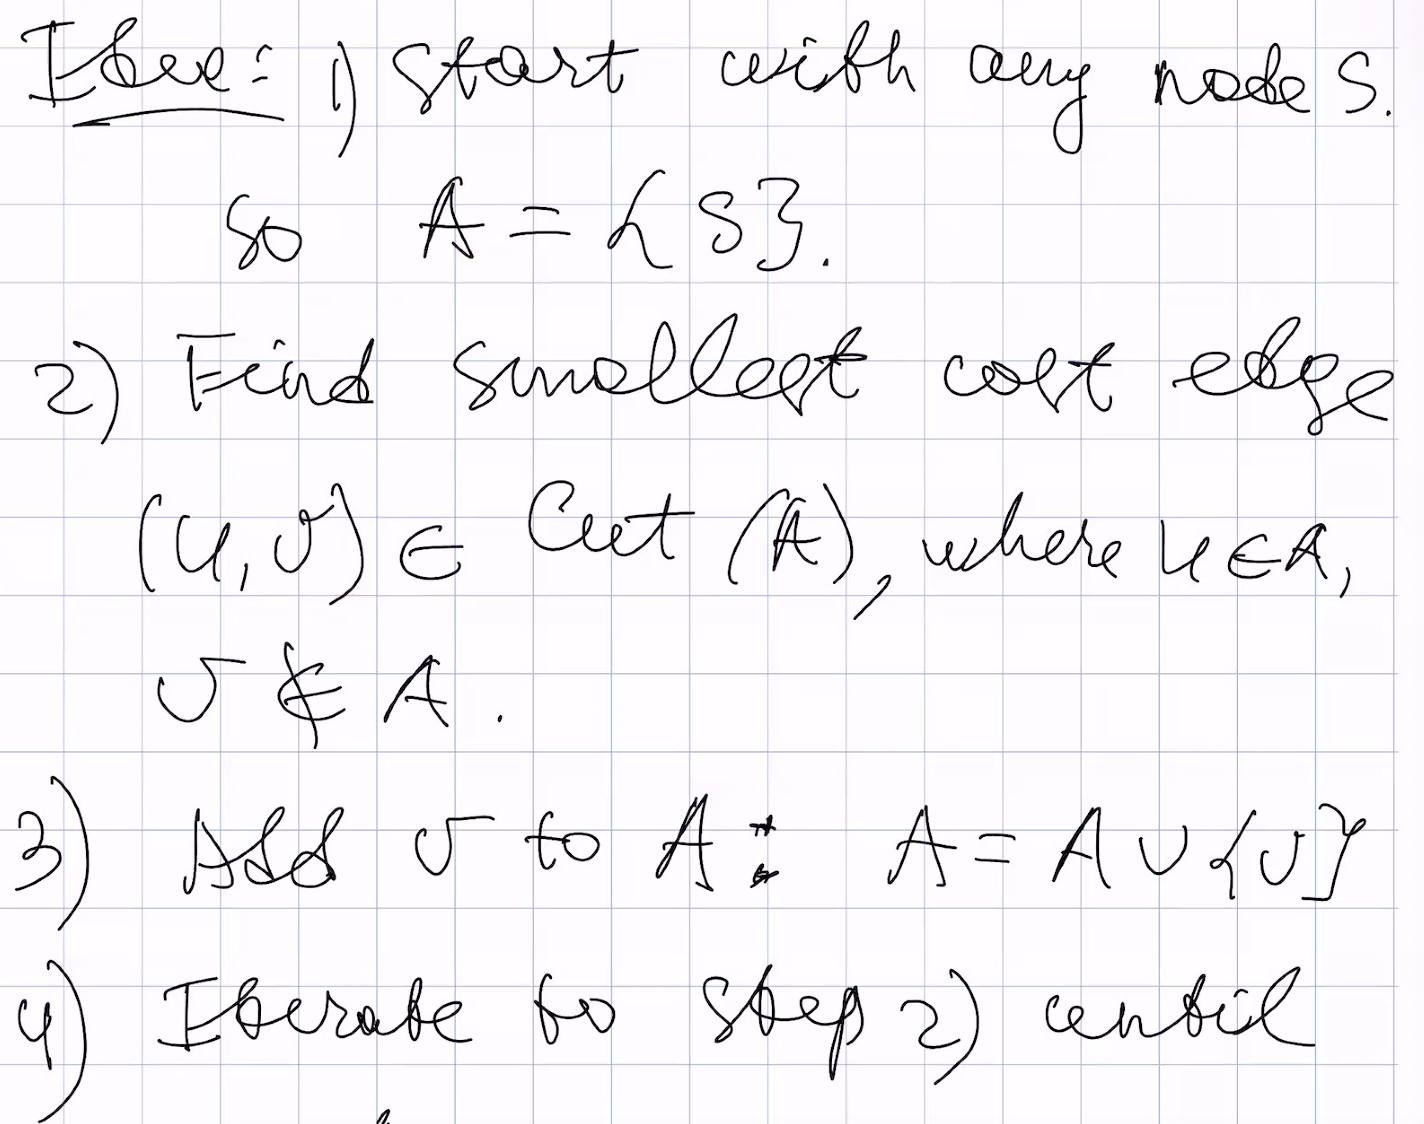 Idea: 1) Start with any node S.
so A = {S}.
2) Find smallest cost edge
(u, v) ∈ Cut (A), where u ∈ A,
v ∉ A.
3) Add v to A: A = A ∪ {v}
4) Iterate to step 2) until